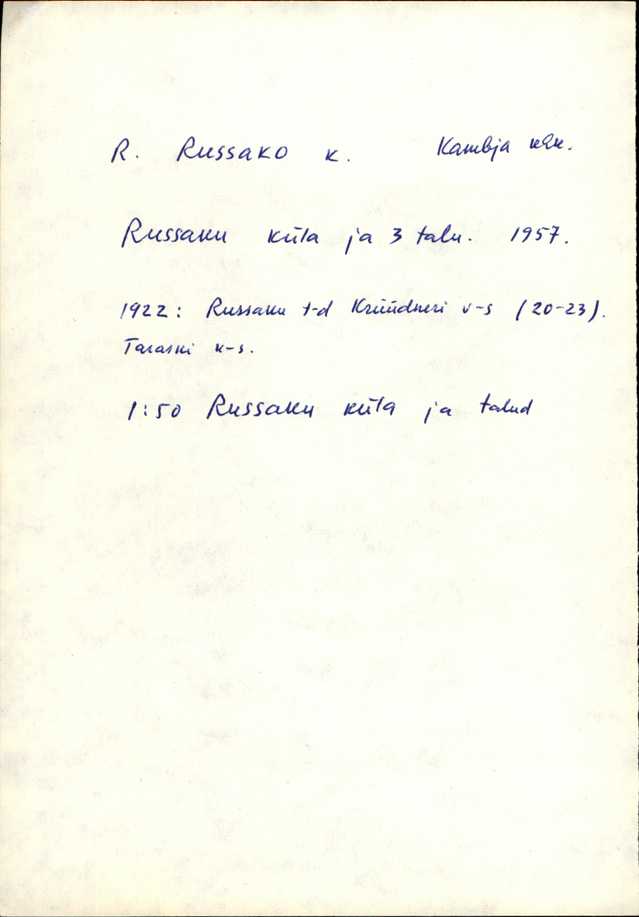 R. Russako k. Kambja khk.
Russaku küla ja 3 talu. 1957.
1922: Russaku t-d Krüüdneri v-s (20-23).
Taraski k-s.
1:50 Russaku küla ja talud